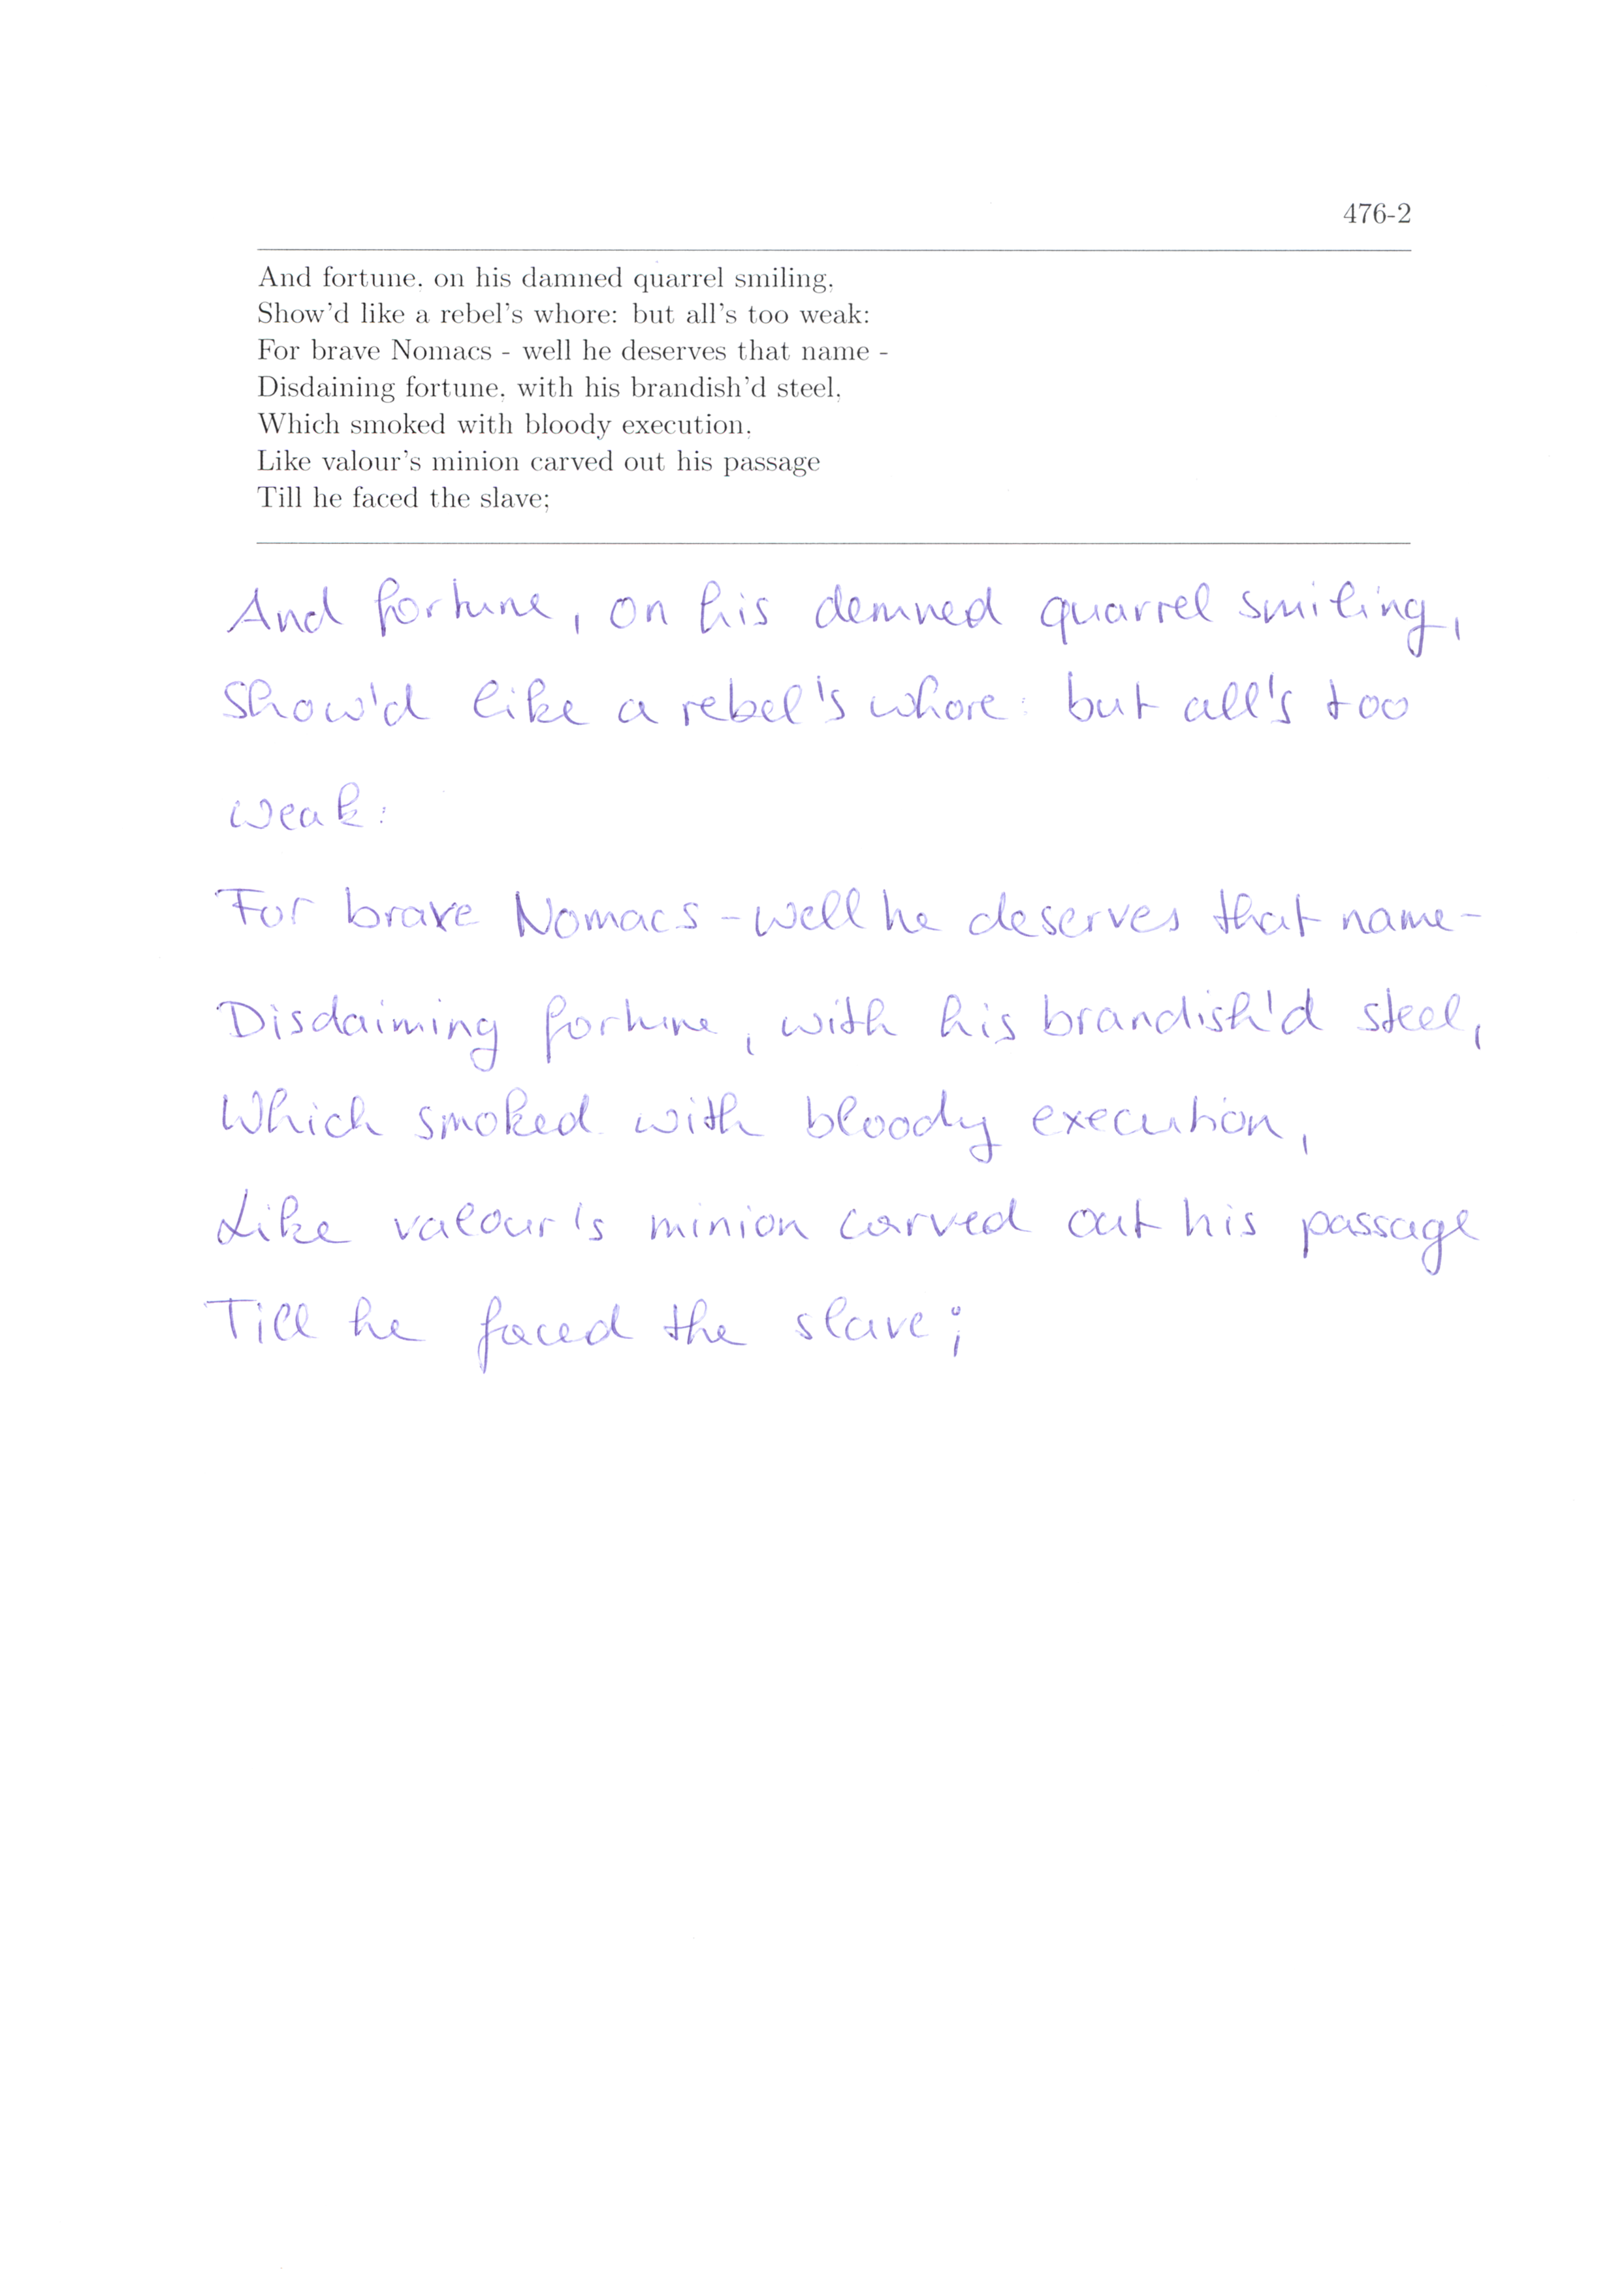 476-2
And fortune, on his damned quarrel smiling,
Show'd like a rebel's whore: but all's too weak:
For brave Nomacs - well he deserves that name -
Disdaining fortune, with his brandish'd steel,
Which smoked with bloody execution,
Like valour's minion carved out his passage
Till he faced the slave;
And fortune, on his demned quarrel smiling,
Show'd like a rebel's whore: but all's too
weak:
For brave Nomacs - well he deserves that name -
Disdaining fortune, with his brandish'd steel,
Which smoked with bloody execution,
Like valour's minion carved out his passage
Till he faced the slave;